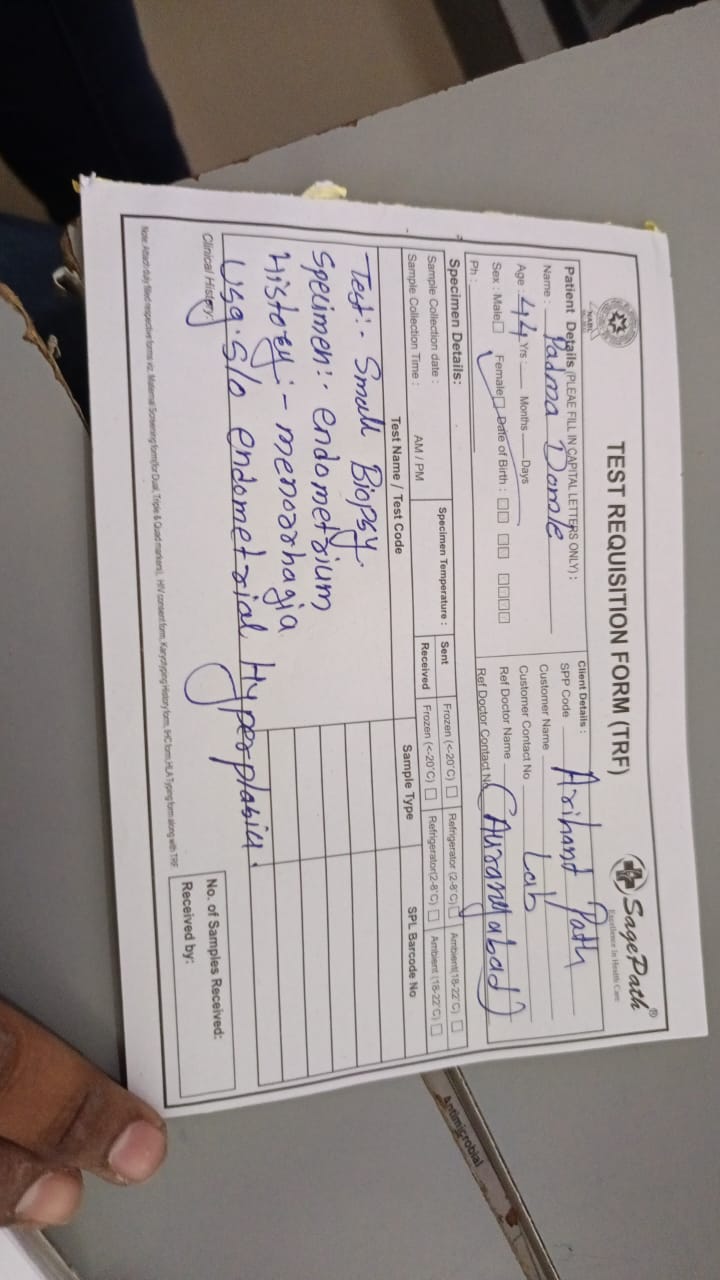 TEST REQUISITION FORM (TRF)
NABL
SagePath®
Excellence In Health Care
Patient Details (PLEAE FILL IN CAPITAL LETTERS ONLY) :
Name : Padma Damle
Age : 44 Yrs : Months Days
Sex : Male Female Date of Birth :
Ph :
Client Details :
SPP Code Arihant Path
Customer Name
Customer Contact No Lab
Ref Doctor Name (Aurangabad)
Ref Doctor Contact No
Specimen Details:
Sample Collection date :
Sample Collection Time : AM / PM
Specimen Temperature :
Sent Frozen (<-20°C) Refrigerator (2-8°C) Ambient(18-22°C)
Received Frozen (<-20°C) Refrigerator(2-8°C) Ambient (18-22°C)
Test Name / Test Code Sample Type SPL Barcode No
Test:- Small Biopsy.
Specimen:- endometrium
History:- menorrhagia
Usg. S/o endometrial Hyperplasia.
Clinical History:
No. of Samples Received:
Received by:
Note: Attach duly filled respective forms viz. Maternal Screening form(for Dual, Triple & Quad markers), HIV consent form, Karyotyping History form, IHC form, HLA Typing form along with TRF
Antimicrobial